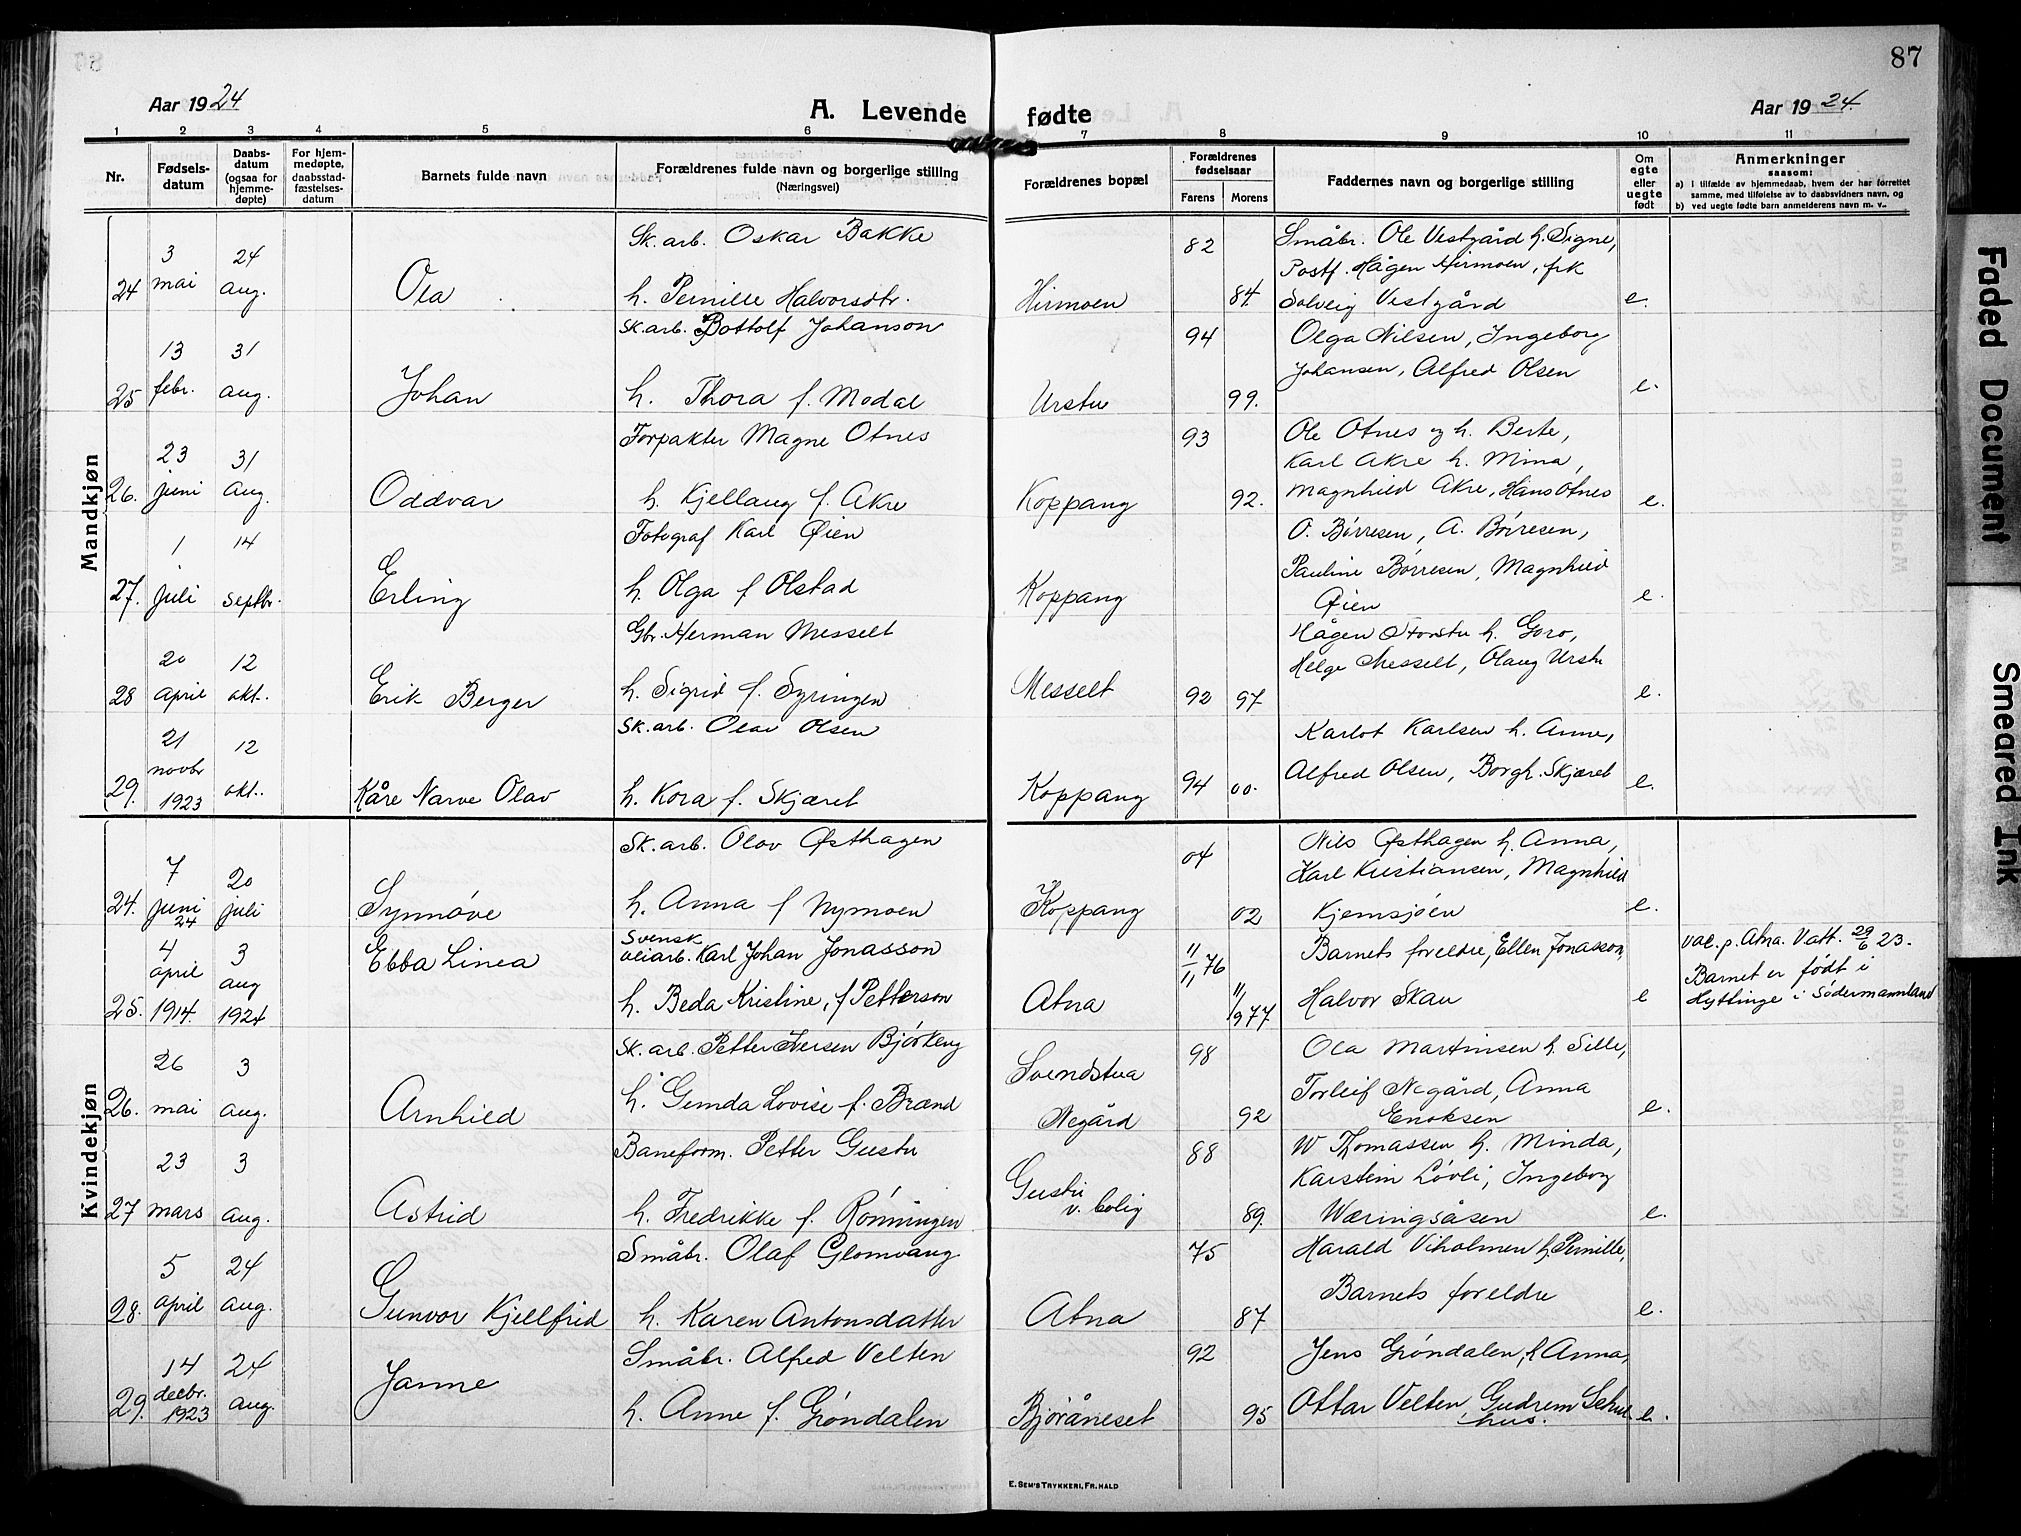 87
Aar 1924
A. Levende
fødte
Aar 1924.
1 2 3 4 5 6 7 8 9 10 11
Nr.
Fødsels-
datum
Daabs-
datum
(ogsaa for
hjemme-
døpte)
For hjem-
medøpte,
daabsstad-
fæstelses-
datum
Barnets fulde navn
Forældrenes fulde navn og borgerlige stilling
(Næringsvei)
Forældrenes bopæl
Forældrenes
fødselsaar
Farens Morens
Faddernes navn og borgerlige stilling
Om
egte
eller
uegte
født
Anmerkninger
saasom:
a) i tilfælde av hjemmedaab, hvem der har forrettet
samme, med tilføielse av to daabsvidners navn, og
b) ved uegte fødte barn anmelderens navn m. v..
Mandkjøn
24 3 mai 24 aug. Ola
Sk. arb. Oskar Bakke
h. Pernille Halvorsdtr.
Hirmoen 82 84.
Småbr. Ole Vestgård h. Signe,
Postf. Hågen Hirmoen, frk
Solveig Vestgård e.
25 13 febr. 31 aug. Johan
Sk. arb. Bottolf Johanson
h. Thora f. Modal
Urstu 94 99.
Olga Nilsen, Ingeborg
Johansen, Alfred Olsen e.
26. 23 juni 31 aug. Oddvar
Forpakter Magne Otnes
h. Kjellaug f. Akre
Koppang 93 92.
Ole Otnes og h. Berte,
Karl Akre h. Mina,
Magnhild Akre, Hans Otnes e.
27. 1 juli 14 septbr. Erling
Fotograf Karl Øien
h. Olga f Olstad
Koppang
O. Børresen, A. Børresen,
Pauline Børresen, Magnhild
Øien e.
28 20 april 12 okt. Erik Berger
Gbr. Herman Messelt
h. Sigrid f. Syringen
Messelt 92 97
Hågen Storstu h. Goro,
Helge Messelt, Olaug Urstu e.
29. 21 novbr 1923 12 okt. Kåre Narve Olav
Sk. arb. Olav Olsen
h. Kora f. Skjæret
Koppang 94 00.
Karlot Karlsen h. Anne,
Alfred Olsen, Borgh. Skjæret e.
Kvindekjøn
24. 7 juni 24 20 juli Synnøve
Sk. arb. Olav Østhagen
h. Anna f Nymoen
Koppang 04 02
Nils Østhagen h. Anna,
Karl Kristiansen, Magnhild
Kjemsjøen e.
25. 4 april 1914. 3 aug 1924 Ebba Linea
Svensk
veiarb. Karl Johan Jonasson
h. Beda Kristine, f Petterson
Atna 11/11 76 11/9 77
Barnets foreldre, Ellen Jonasson,
Halvor Skau e
vac. p. Atna. Vatt. 29/6 23.
Barnet er født i
Hyttinge i Södermannland
26. 26 mai 3 aug. Arnhild
Sk. arb. Petter Iversen Bjørkeng
h. Gemda Lovise f. Brænd
Svendstua
Negård 98 92
Ola Martinsen h. Sille,
Torleif Negård, Anna
Enoksen e.
27 23 mars 3 aug. Astrid
Baneform. Petter Gustu
h. Fredrikke f. Rønningen
Gustu
v. bolig 88 89.
W Thomassen h. Minda,
Karstein Løvli, Ingeborg
Wæringsåsen e.
28. 5 april 24 aug. Gunvor Kjellfrid
Småbr. Olaf Glomvang
h. Karen Antonsdatter
Atna 75 87
Harald Viholmen h. Pernille,
Barnets foreldre e.
29. 14 decbr. 1923 24 aug. Janne
Småbr. Alfred Velten
h. Anne f. Grøndalen
Bjøråneset 92 95
Jens Grøndalen, h Anna,
Ottar Velten, Gudrun Schul
hus. e.
E. SEM'S TRYKKERI, FR.HALD
Faded Document
Smeared Ink